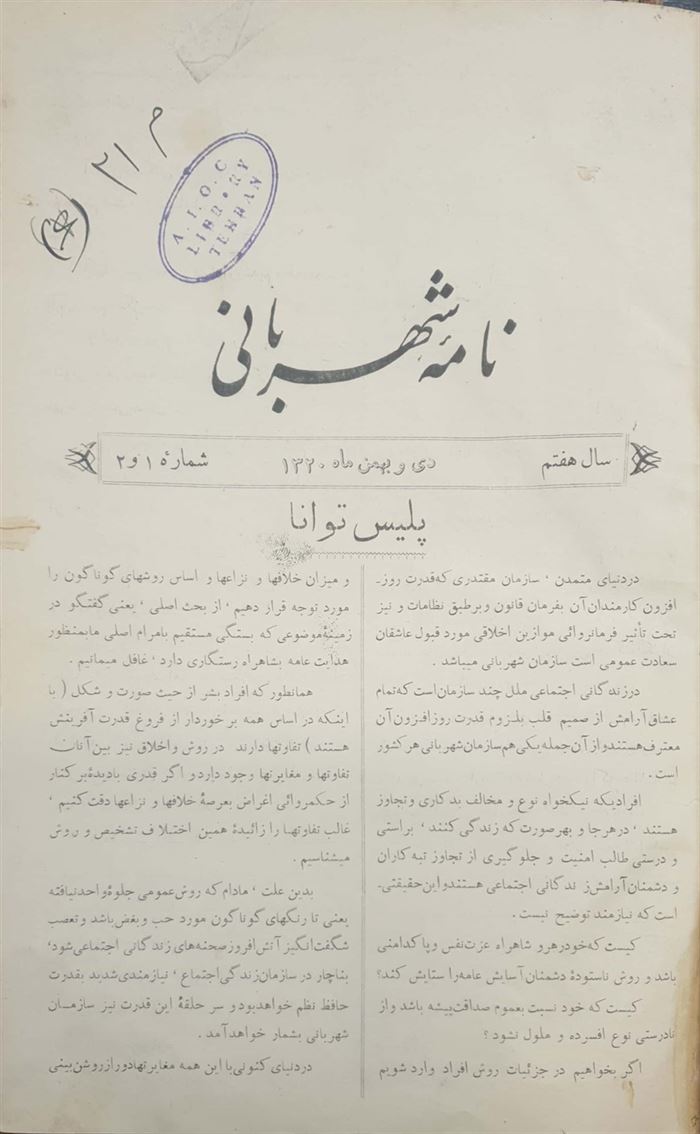 م ۲۱
A. I. O. C
LIBRARY
TEHRAN
نامهٔ شهربانی
سال هفتم
دی و بهمن ماه ۱۳۲۰
شمارهٔ ۱ و ۲
پلیس توانا
دردنیای متمدن ، سازمان مقتدری که قدرت روز-
افزون کارمندان آن بفرمان قانون و برطبق نظامات و نیز
تحت تأثیر فرمانروائی موازین اخلاقی مورد قبول عاشقان
سعادت عمومی است سازمان شهربانی میباشد .
درزندگانی اجتماعی ملل چند سازمان است که تمام
عشاق آرامش از صمیم قلب بلزوم قدرت روز افزون آن
معترف هستند و از آن جمله یکی هم سازمان شهربانی هر کشور
است .
افرادیکه نیکخواه نوع و مخالف بدکاری و تجاوز
هستند ، در هر جا و بهر صورت که زندگی کنند ، براستی
و درستی طالب امنیت و جلوگیری از تجاوز تبه کاران
و دشمنان آرامش زندگانی اجتماعی هستند و این حقیقتی-
است که نیازمند توضیح نیست .
کیست که خود رهرو شاهراه عزت نفس و پاکدامنی
باشد و روش ناستودهٔ دشمنان آسایش عامه را ستایش کند؟
کیست که خود نسبت بعموم صداقت پیشه باشد و از
نادرستی نوع افسرده و ملول نشود ؟
اگر بخواهیم در جزئیات روش افراد وارد شویم
و میزان خلافها و نزاعها و اساس روشهای گوناگون را
مورد توجه قرار دهیم ، از بحث اصلی ، یعنی گفتگو در
زمینهٔ موضوعی که بستگی مستقیم بامرام اصلی ما بمنظور
هدایت عامه بشاهراه رستگاری دارد ، غافل میمانیم .
همانطور که افراد بشر از حیث صورت و شکل ( با
اینکه در اساس همه برخوردار از فروغ قدرت آفرینش
هستند ) تفاوتها دارند در روش و اخلاق نیز بین آنان
تفاوتها و مغایرتها وجود دارد و اگر قدری بادیدهٔ بر کنار
از حکمروائی اغراض بعرصهٔ خلافها و نزاعها دقت کنیم ،
غالب تفاوتها را زائیدهٔ همین اختلاف تشخیص و روش
میشناسیم .
بدین علت ، مادام که روش عمومی جلوهٔ واحد نیافته
یعنی تا رنگهای گوناگون مورد حب و بغض باشد و تعصب
شگفت انگیز آتش افروز صحنه های زندگانی اجتماعی شود ،
بناچار در سازمان زندگی اجتماع ، نیازمندی شدید بقدرت
حافظ نظم خواهد بود و سر حلقهٔ این قدرت نیز سازمان
شهربانی بشمار خواهد آمد .
دردنیای کنونی با این همه مغایرتها دور از روشن بینی